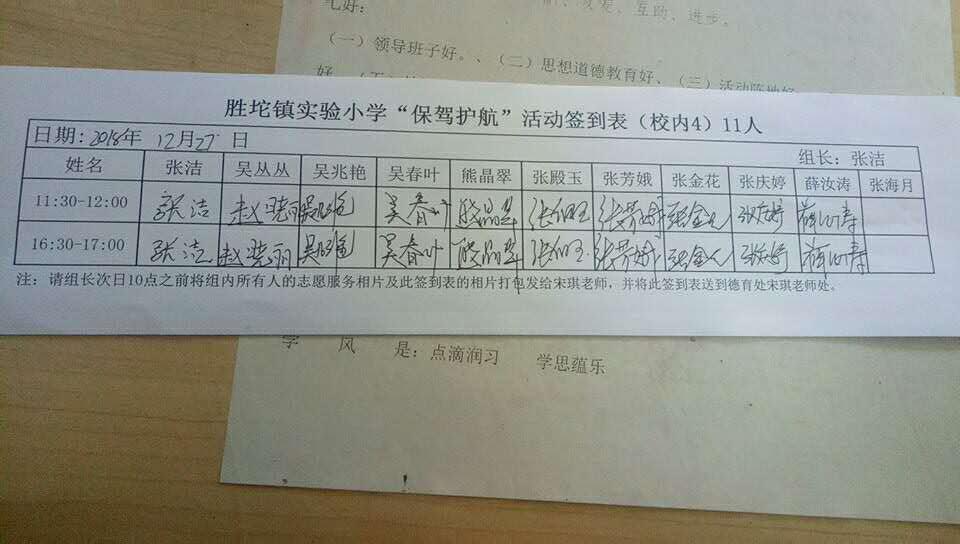 、互助、进步。
（一）领导班子好。、（二）思想道德教育好、（三）活动阵地好
胜坨镇实验小学“保驾护航”活动签到表（校内4）11人
日期：2018年 12月27日 组长：张洁
姓名 张洁 吴丛丛 吴兆艳 吴春叶 熊晶翠 张殿玉 张芳娥 张金花 张庆婷 薛汝涛 张海月
11:30-12:00 张洁 赵晓丽 吴兆艳 吴春叶 熊晶翠 张殿玉 张芳娥 张金花 张庆婷 薛汝涛
16:30-17:00 张洁 赵晓丽 吴兆艳 吴春叶 熊晶翠 张殿玉 张芳娥 张金花 张庆婷 薛汝涛
注：请组长次日10点之前将组内所有人的志愿服务相片及此签到表的相片打包发给宋琪老师，并将此签到表送到德育处宋琪老师处。
学 风 是：点滴润习 学思蕴乐